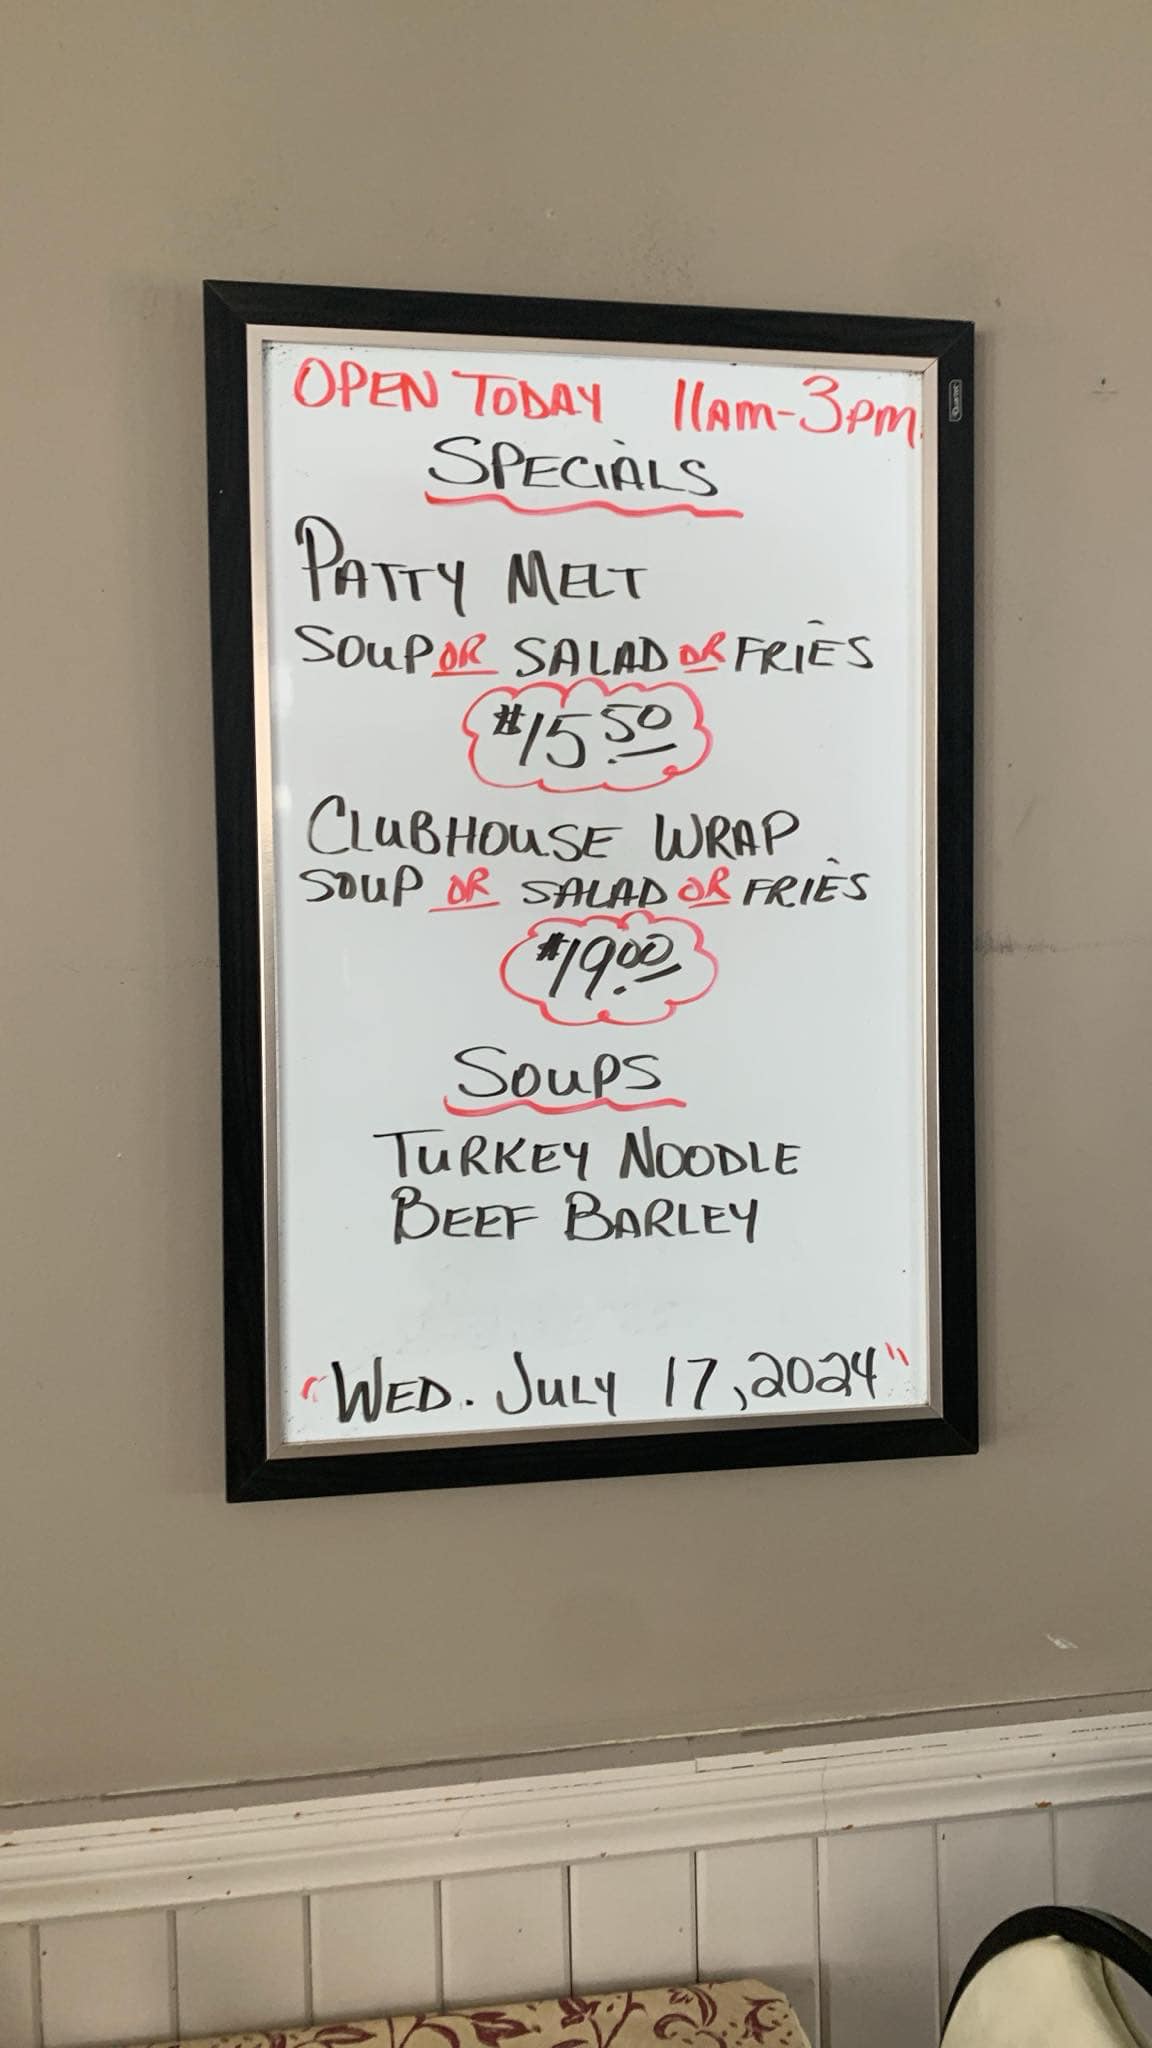 OPEN TODAY 11AM-3PM
SPECIALS
PATTY MELT
SOUP OR SALAD OR FRIES
$15.50
CLUBHOUSE WRAP
SOUP OR SALAD OR FRIES
$19.00
SOUPS
TURKEY NOODLE
BEEF BARLEY
"WED. JULY 17, 2024"
Quartet